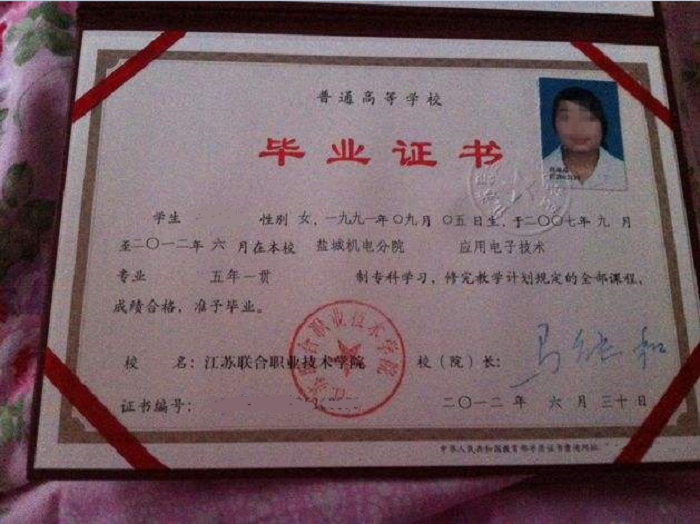 普通高等学校
毕业证书
学生 性别 女，一九九一年〇九月〇五日生，于二〇〇七年九月
至二〇一二年六月在本校 盐城机电分院 应用电子技术
专业 五年一贯 制专科学习，修完教学计划规定的全部课程，
成绩合格，准予毕业。
校 名：江苏联合职业技术学院 校（院）长：
江苏联合职业技术学院
证书编号： 二〇一二年六月三十日
中华人民共和国教育部学历证书查询网址：